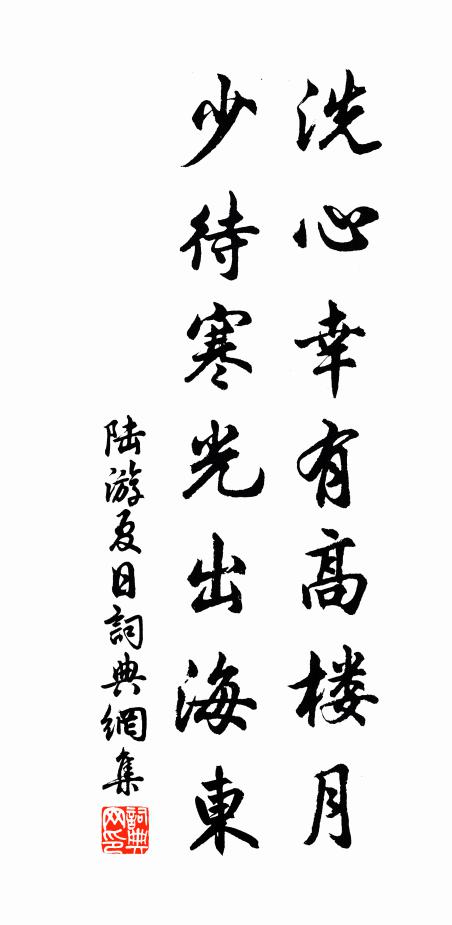 洗心幸有高楼月
少待寒光出海東
陆游夏日詞典網集
詞典网印